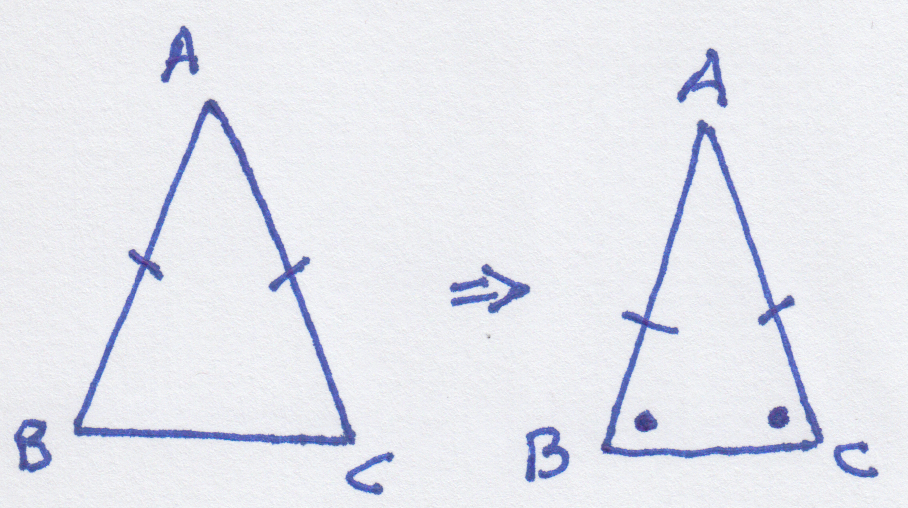 A
B C
⇒
A
B C